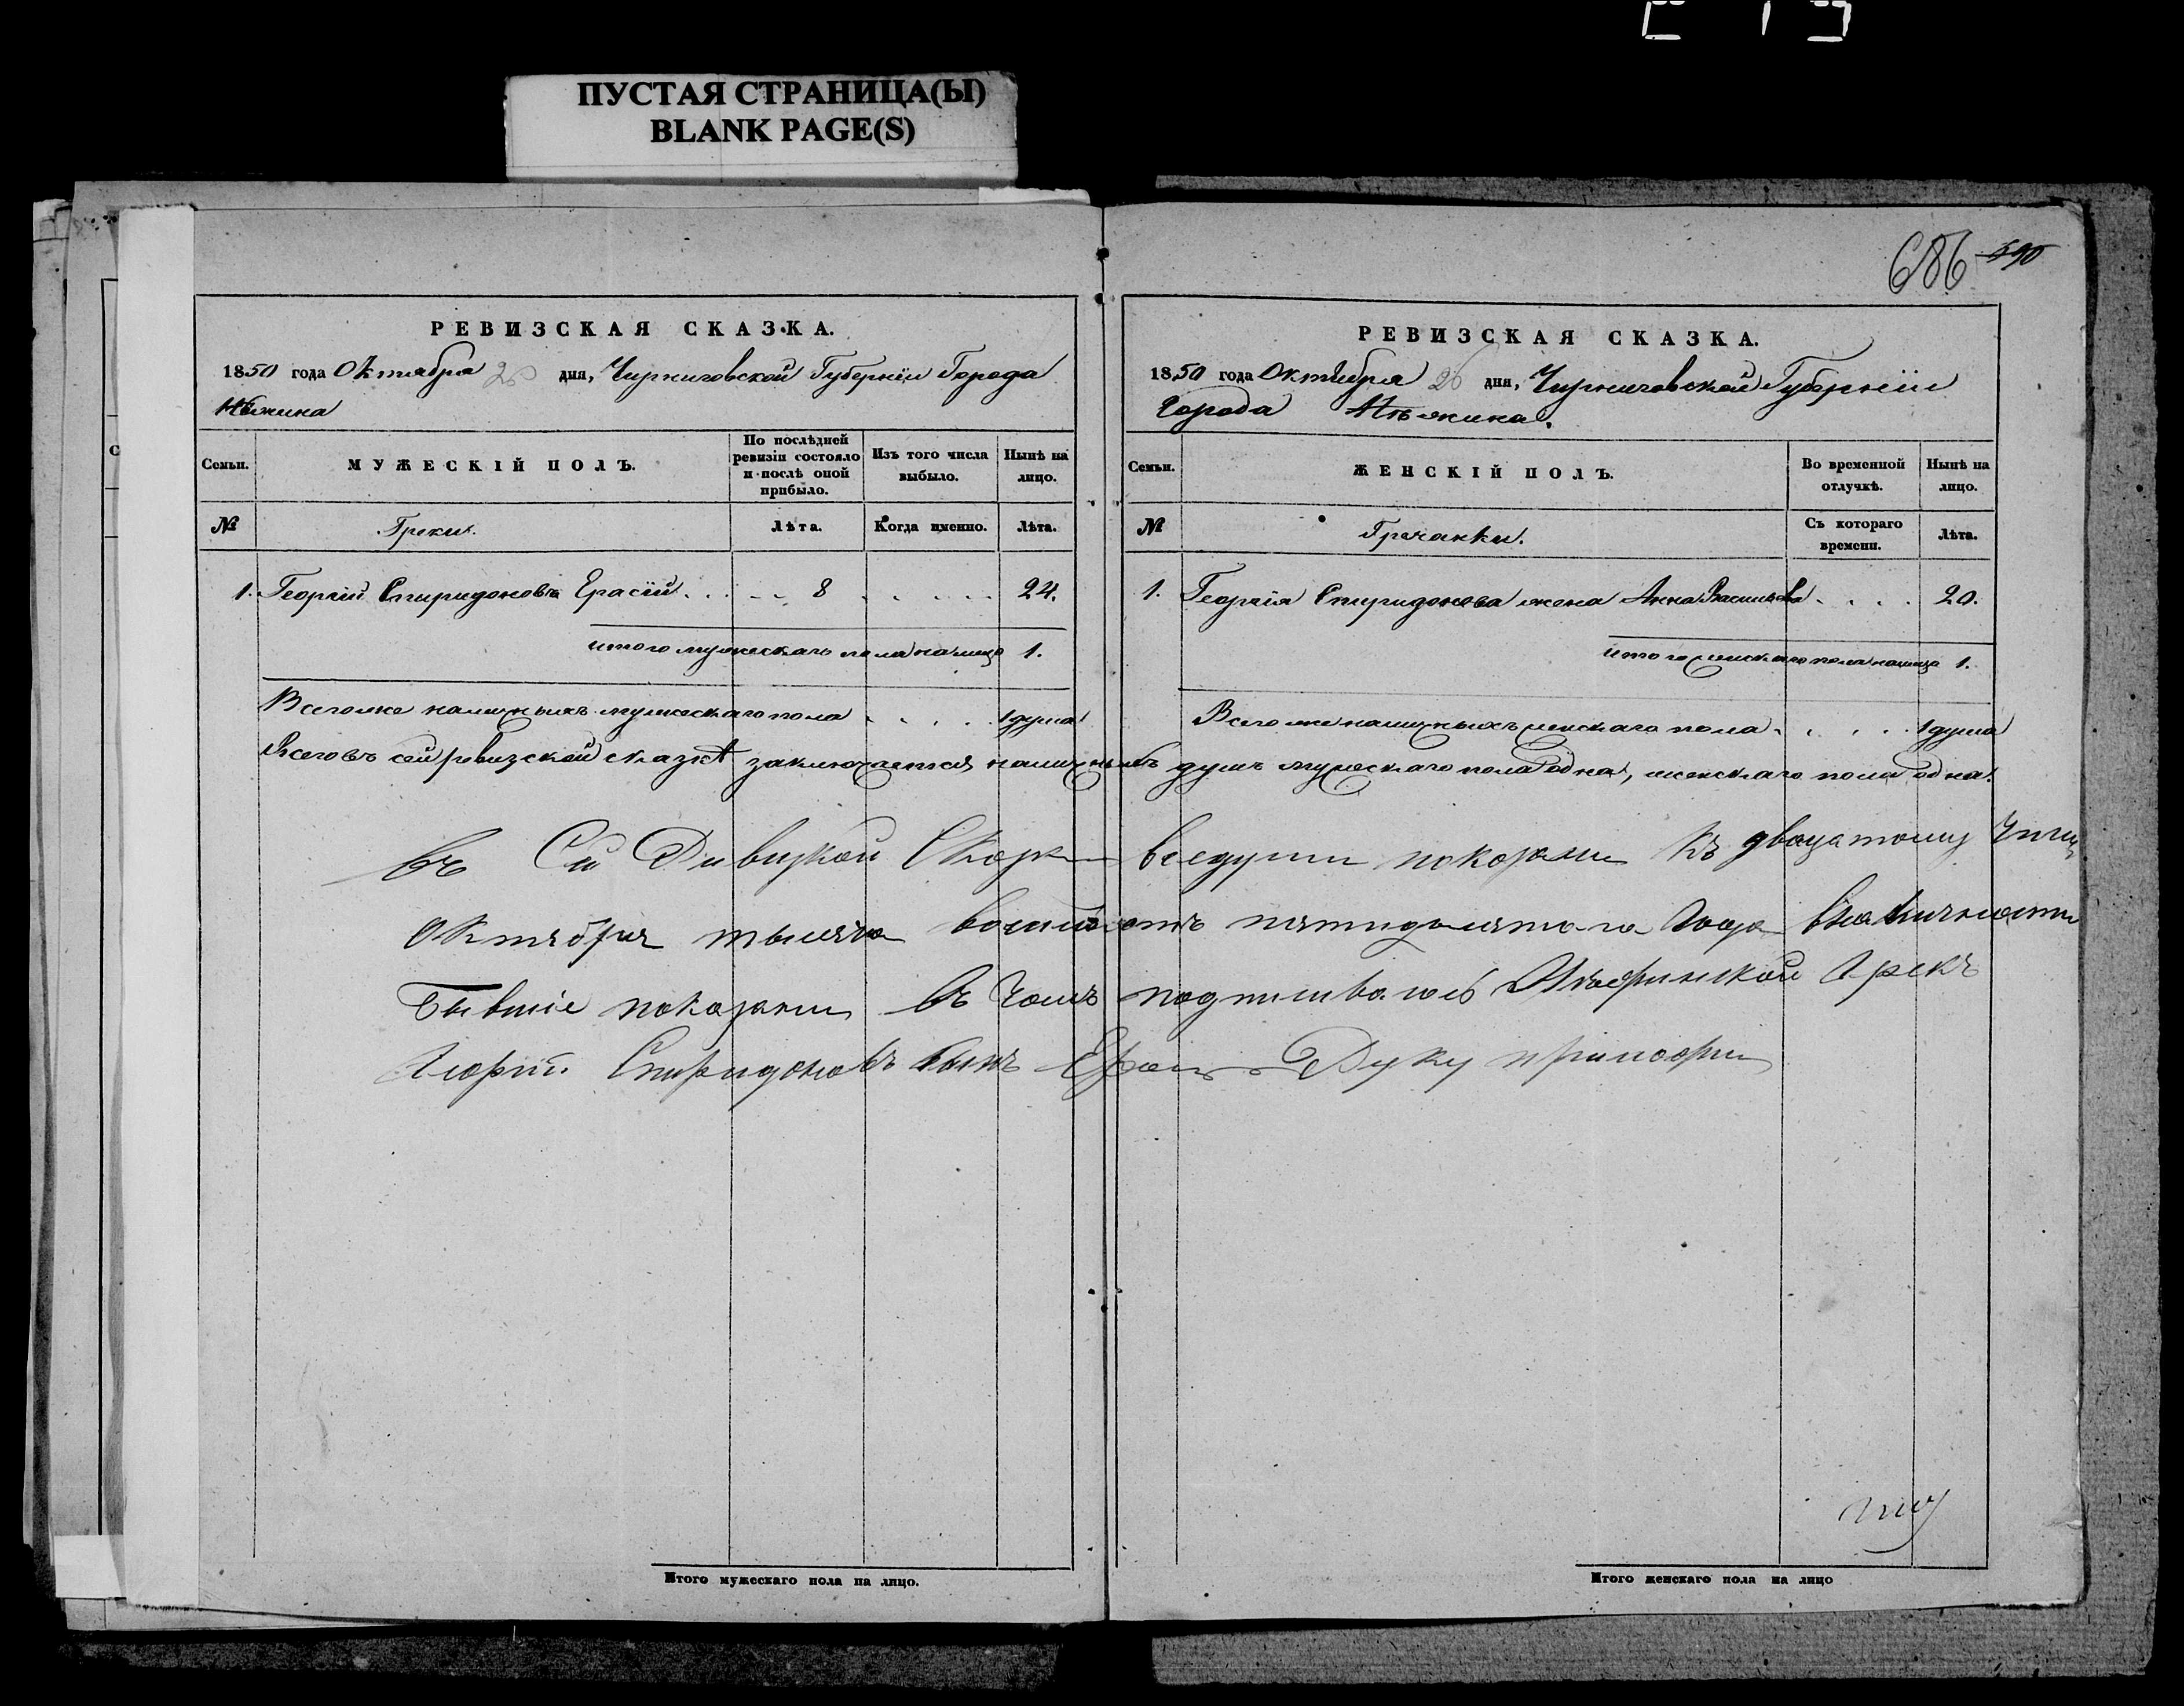 ПУСТАЯ СТРАНИЦА(Ы)
BLANK PAGE(S)
РЕВИЗСКАЯ СКАЗКА.
1850 года Октября 26 дня, Чирниговской Губерніи Города
Нѣжина
Семьи.
МУЖЕСКІЙ ПОЛЪ.
По послѣдней ревизіи состояло и послѣ оной прибыло.
Изъ того числа выбыло.
Нынѣ на лицо.
№
Греки.
Лѣта.
Когда именно.
Лѣта.
1. Георгій Спиридоновъ Ерасій . . . 8 . . . . . 24.
итого мужескаго пола налицо 1.
Всегоже наличныхъ мужескаго пола . . . . 1 душа
686 590
РЕВИЗСКАЯ СКАЗКА.
1850 года Октября 26 дня, Чирниговской Губерніи
Города Нѣжина.
Семьи.
ЖЕНСКІЙ ПОЛЪ.
Во временной отлучкѣ.
Нынѣ на лицо.
№
Гречанки.
Съ котораго времени.
Лѣта.
1. Георгія Спиридонова жена Анна Васильева . . . . 20.
итого женскаго пола налицо 1.
Всего же наличныхъ женскаго пола . . . . 1 душа
Всего въ сей ревизской сказкѣ заключается наличныхъ душъ мужескаго пола одна, женскаго пола одна.
въ Сей Сказки вседуши показани къ двацатому
Октября тысяча восимсотъ пятидесятаго Года
Бывшіе показани въ Чомъ подписивался Грекъ
Спиридоновъ сынъ Руку приложи
Итого мужескаго пола на лицо.
Итого женскаго пола на лицо